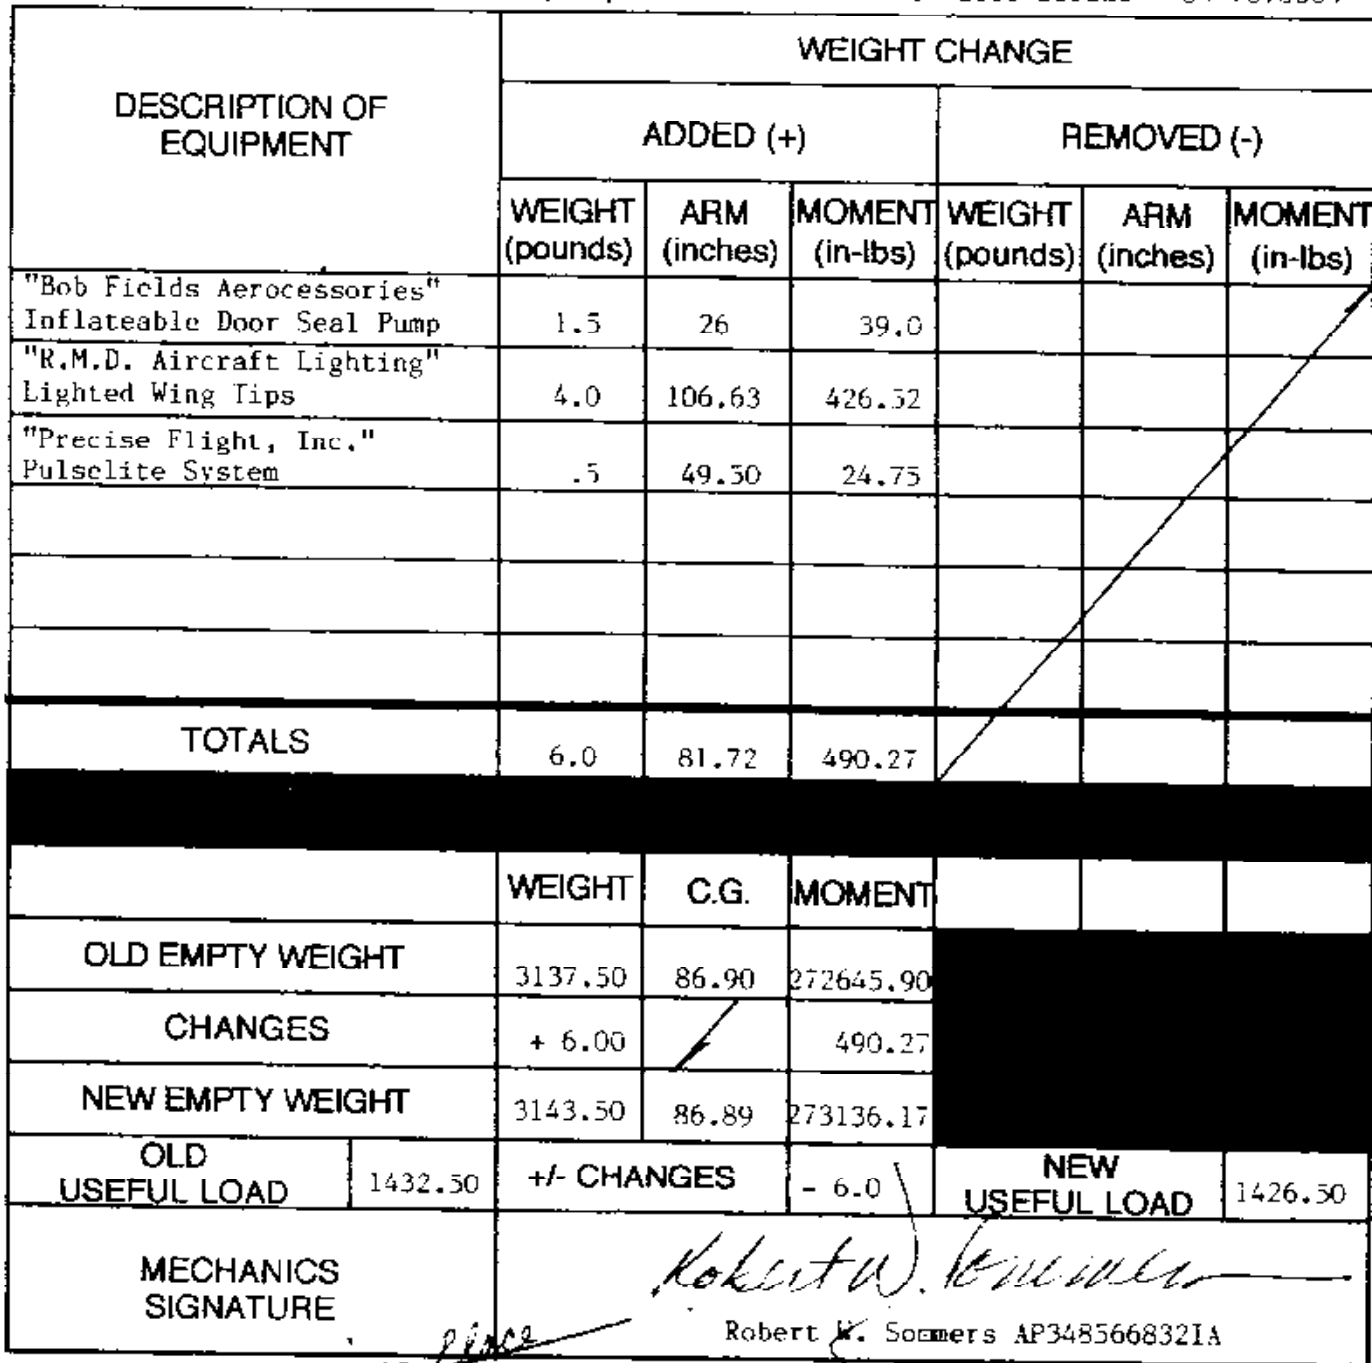 WEIGHT CHANGE
DESCRIPTION OF
EQUIPMENT
ADDED (+) REMOVED (-)
WEIGHT ARM MOMENT WEIGHT ARM MOMENT
(pounds) (inches) (in-lbs) (pounds) (inches) (in-lbs)
"Bob Fields Aerocessories"
Inflateable Door Seal Pump 1.5 26 39.0
"R.M.D. Aircraft Lighting"
Lighted Wing Tips 4.0 106.63 426.52
"Precise Flight, Inc."
Pulselite System .5 49.50 24.75
TOTALS 6.0 81.72 490.27
WEIGHT C.G. MOMENT
OLD EMPTY WEIGHT 3137.50 86.90 272645.90
CHANGES + 6.00 490.27
NEW EMPTY WEIGHT 3143.50 86.89 273136.17
OLD
USEFUL LOAD 1432.50 +/- CHANGES - 6.0 NEW
USEFUL LOAD 1426.50
MECHANICS
SIGNATURE
Robert W. Sommers
Robert W. Sommers AP348566832IA
place